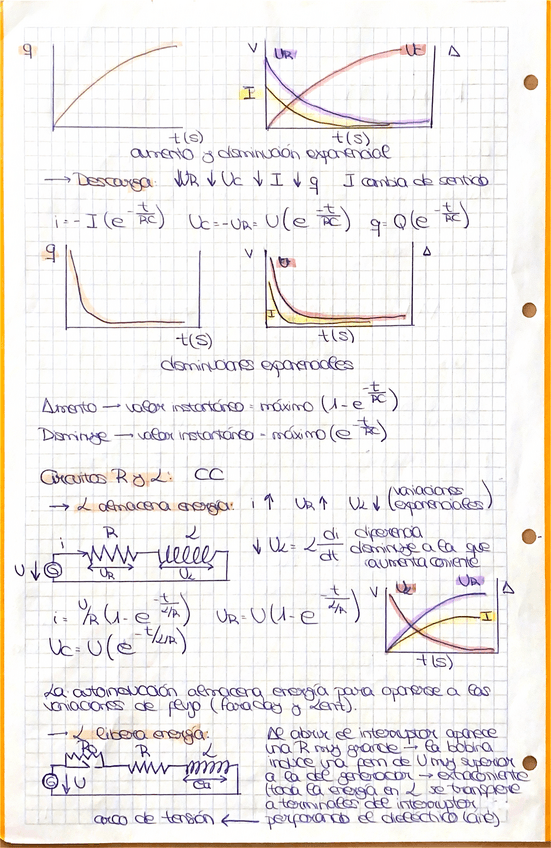 q
V
UR
UC
A
I
t(s)
t(s)
aumento y disminución exponencial
→ Descarga: ↓UR ↓ UC ↓ I ↓ q I cambia de sentido
i = - I (e^-t/RC) UC = -UR = U(e^-t/RC) q = Q(e^-t/RC)
q
V
U
A
I
t(s)
t(s)
disminuciones exponenciales
Aumento → valor instantáneo = máximo (1 - e^-t/RC)
Disminuye → valor instantáneo = máximo (e^-t/RC)
Circuitos R y L: CC
→ L almacena energía: i ↑ UR ↑ UL ↓ (variaciones exponenciales)
i R L
U ↓ UR UL
↓ UL = L di/dt diferencia
disminuye a la que
i aumenta corriente
i = U/R (1 - e^-t/L/R) UR = U(1 - e^-t/L/R)
UC = U(e^-t/L/R)
V UL UR A
I
t(s)
La autoinducción almacena energía para oponerse a las
variaciones de flujo (Faraday y Lenz).
→ L libera energía:
R L
↓ U
Al abrir el interruptor aparece
una R muy grande → la bobina
induce una fem de U muy superior
a la del generador →
(toda la energía en L se transfiere
a terminales del interruptor
perforando el dieléctrico (aire).
arco de tensión ←